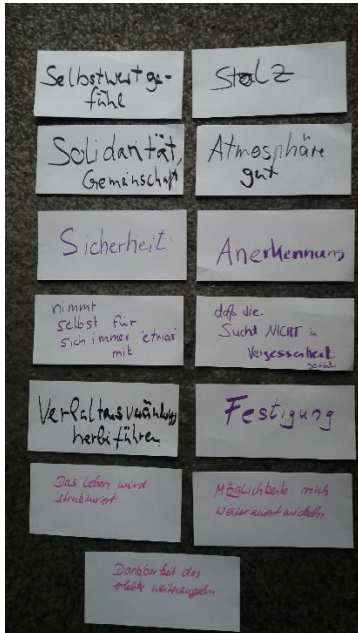 Selbstwertge-
fühl
Stolz
Solidarität,
Gemeinschaft
Atmosphäre
gut
Sicherheit
Anerkennung
nimmt
selbst für
sich immer etwas
mit
daß die
Sucht NICHT in
Vergessenheit
gerät
Verhaltensveränderung
herbiführen
Festigung
Das Leben wird
strukturiert
mich
Dankbarkeit das
erlebte weiterzugeben